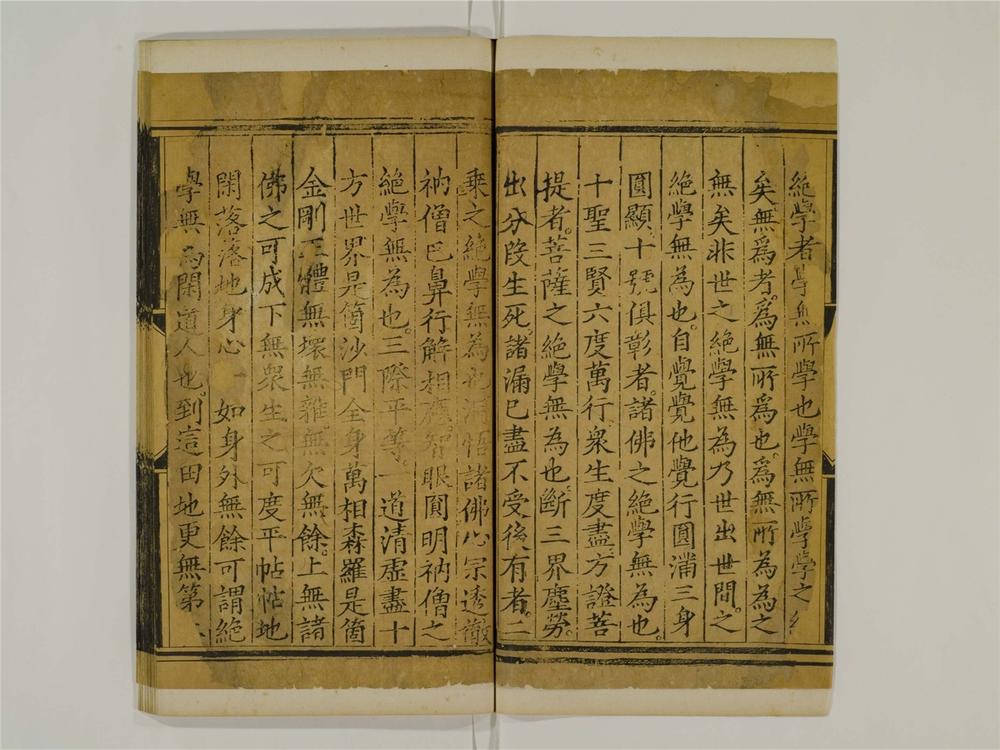 絶學者學無所學也學無所學學之絶
矣無爲者爲無所爲也爲無所爲爲之
無矣非世之絶學無為乃世出世間之
絶學無為也自覺覺他覺行圓滿三身
圓顯十號俱彰者諸佛之絶學無為也
十聖三賢六度萬行衆生度盡方證菩
提者菩薩之絶學無為也斷三界塵勞
出分段生死諸漏已盡不受後有者二
乘之絶學無為也洞悟諸佛心宗透徹
衲僧巴鼻行解相應智眼圓明衲僧之
絶學無為也三際平等一道清虛盡十
方世界是箇沙門全身萬相森羅是箇
金剛正體無壞無雜無欠無餘上無諸
佛之可成下無衆生之可度平帖帖地
閑落落地身心一如身外無餘可謂絶
學無為閑道人也到這田地更無第二